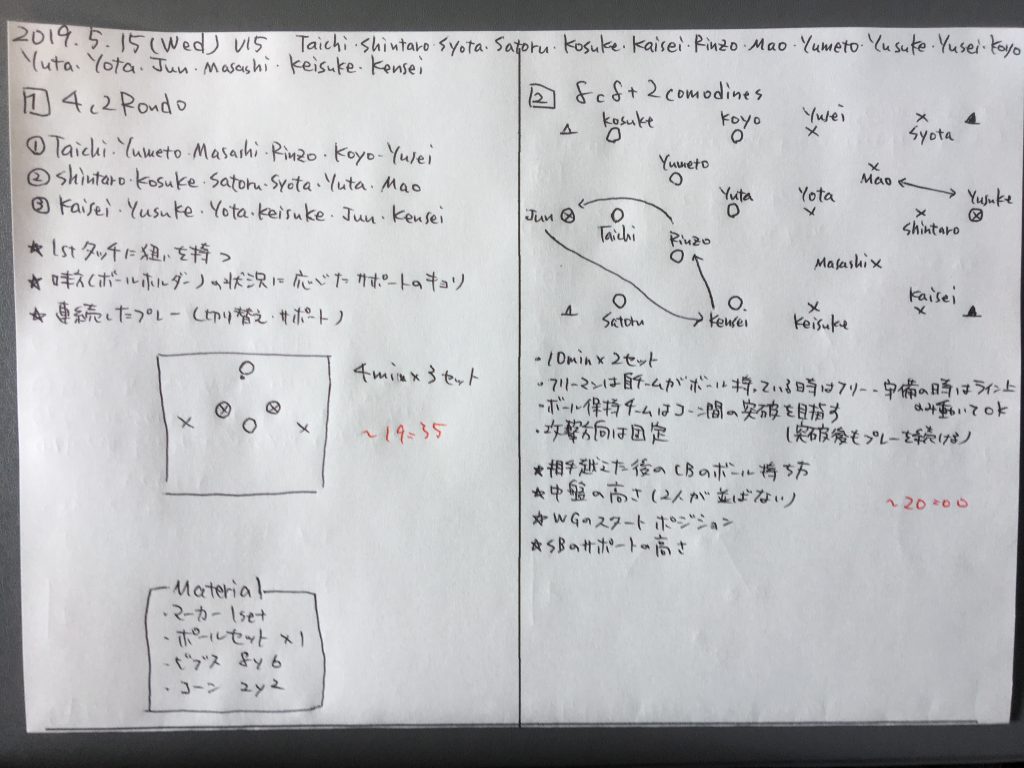 2019.5.15(Wed) U15 Taichi・Shintaro・Syota・Satoru・Kosuke・Kaisei・Rinzo・Mao・Yumeto・Yusuke・Yusei・Koyo
Yuta・Yota・Jun・Masashi・Keisuke・Kensei
1 4c2 Rondo
① Taichi・Yumeto・Masashi・Rinzo・Koyo・Yusei
② Shintaro・Kosuke・Satoru・Syota・Yuta・Mao
③ Kaisei・Yusuke・Yota・Keisuke・Jun・Kensei
★ 1stタッチに狙いを持つ
★ 味方(ボールホルダー)の状況に応じたサポートのキョリ
★ 連続したプレー(切り替え・サポート)
4min×3セット
~19:35
Material
・マーカー 1set
・ボールセット ×1
・ビブス 8y6
・コーン 2y2
2 8c8+2comodines
Kosuke
Koyo
Yusei
Syota
Yumeto
Mao
Yusuke
Yuta
Yota
Jun
Taichi
Shintaro
Rinzo
Masashi
Kaisei
Satoru
Kensei
Keisuke
・10min×2セット
・フリーマンは自チームがボール持っている時はフリー、守備の時はライン上
のみ動いてOK
・ボール保持チームはコーン間の突破を目指す
・攻撃方向は固定 (突破後もプレーを続ける)
★相手越えた後のCBのボール持ち方
★中盤の高さ(2人が並ばない)
~20:00
★WGのスタートポジション
★SBのサポートの高さ